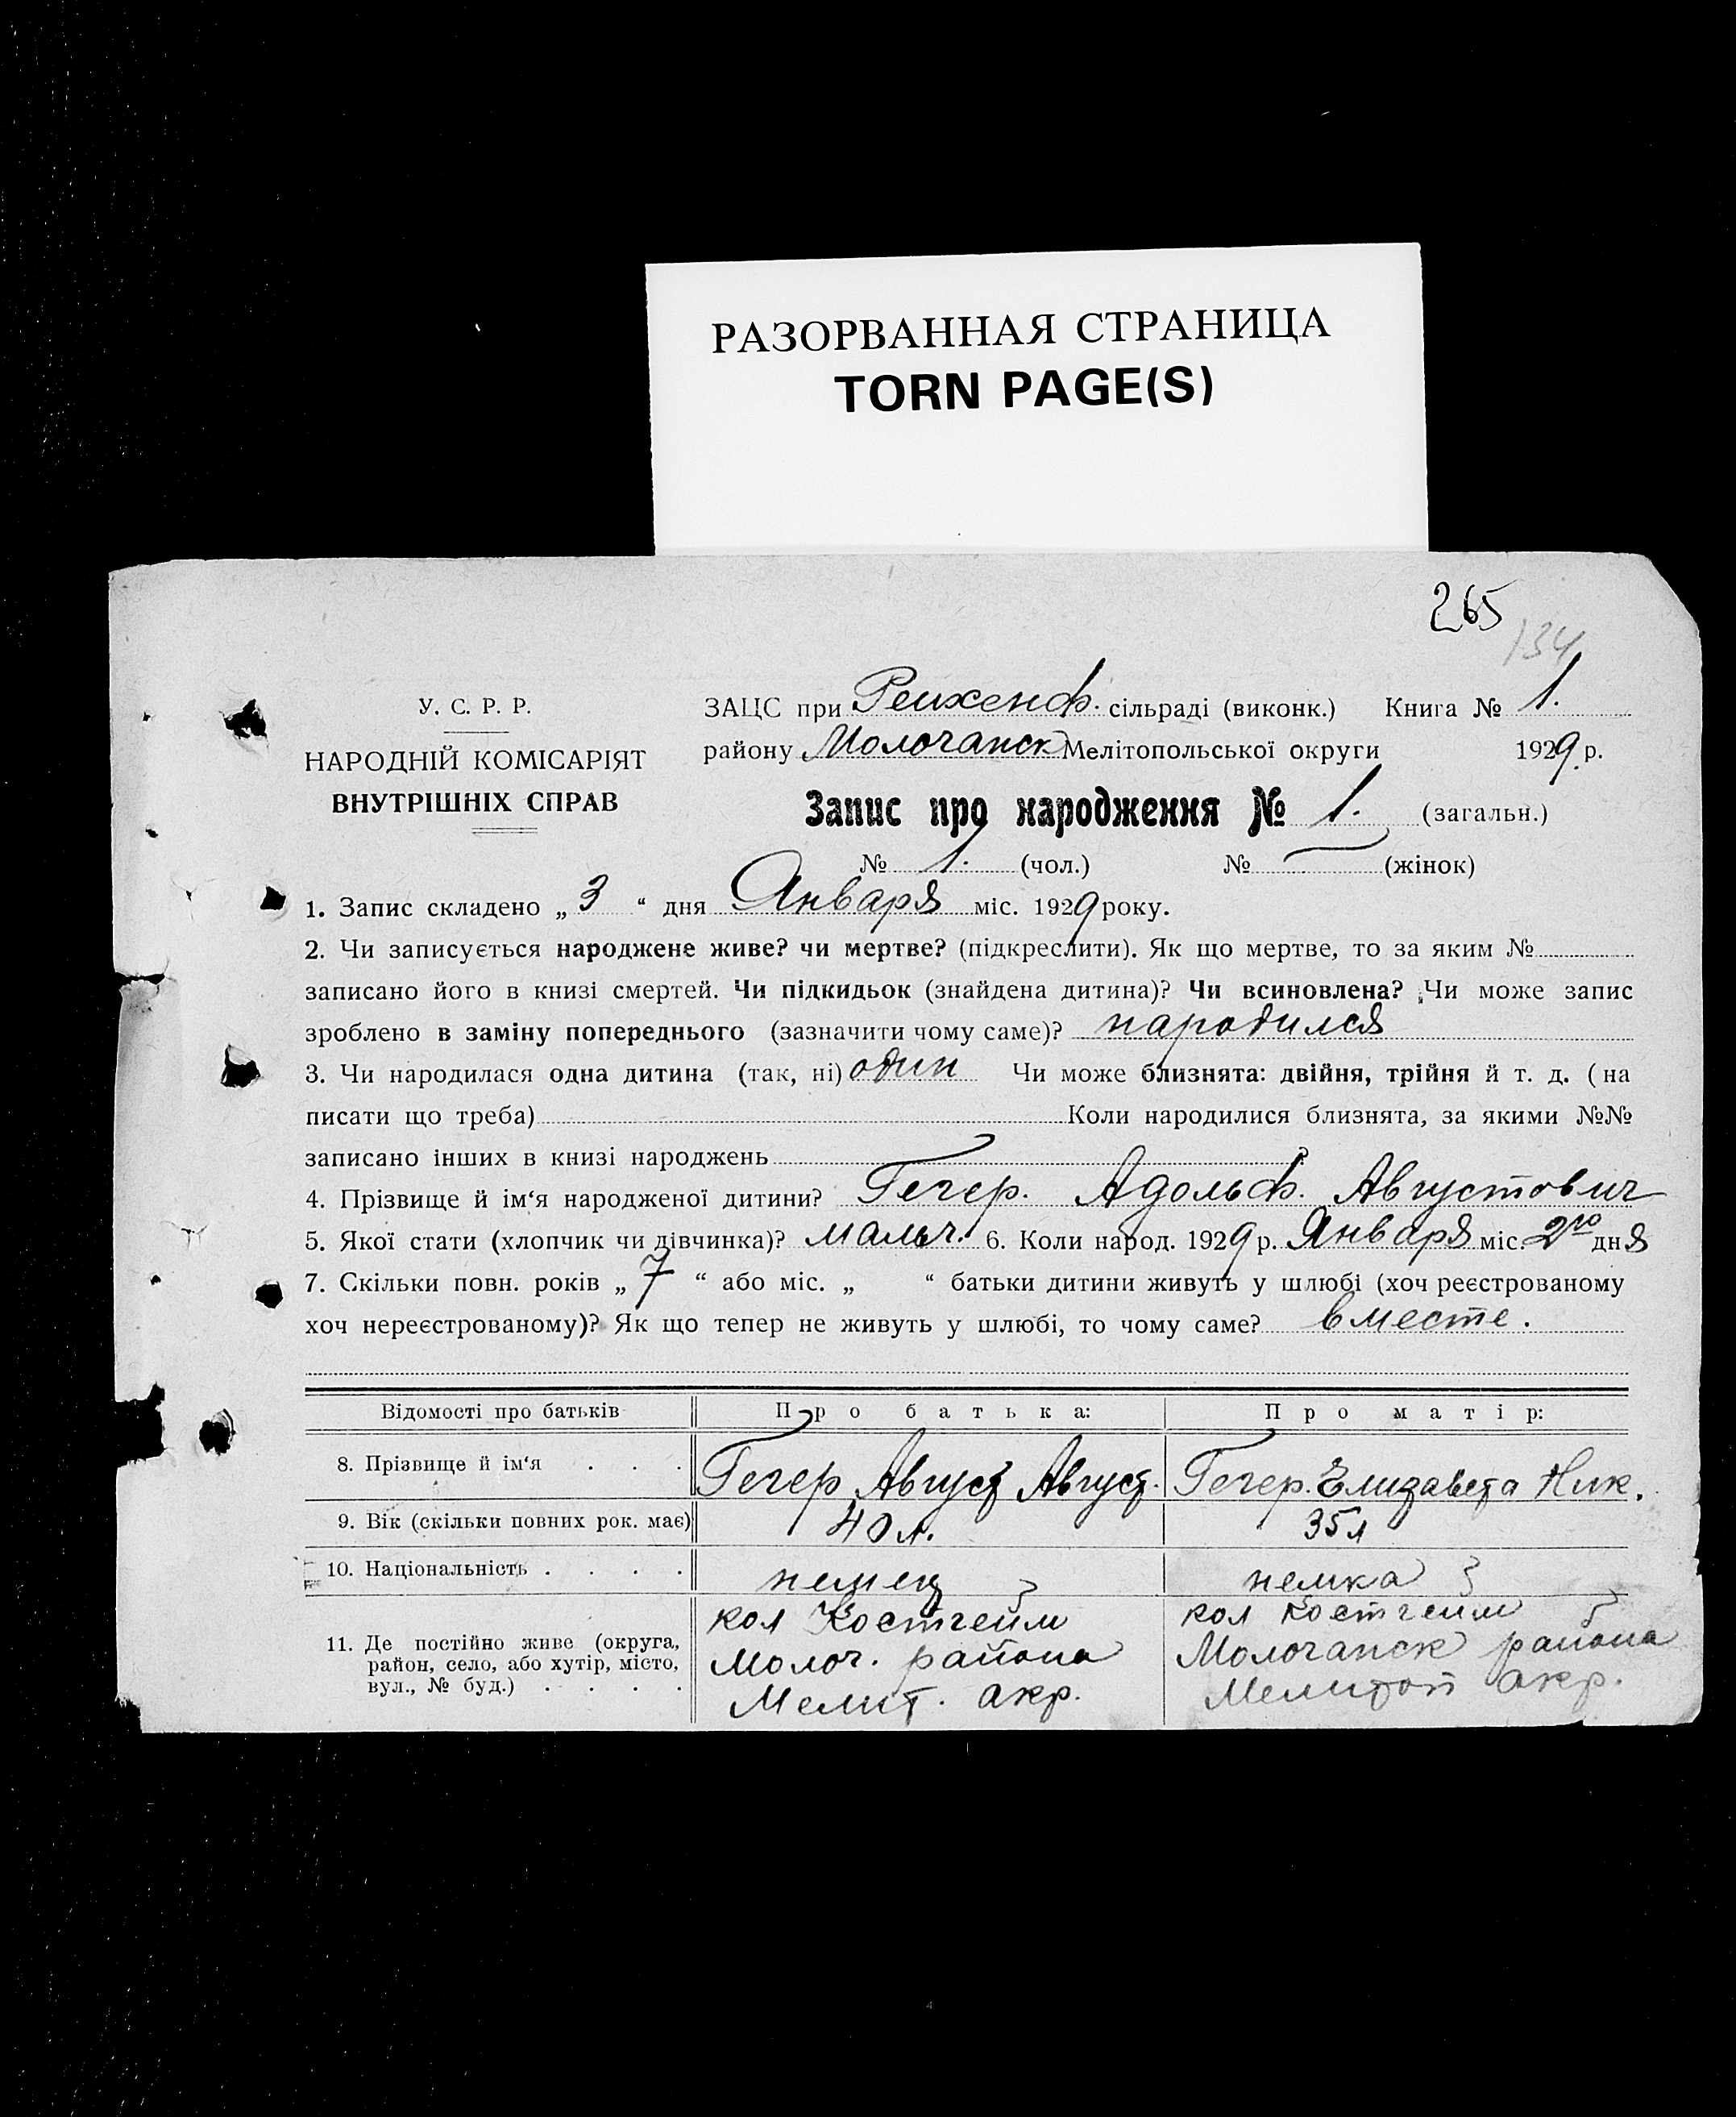 РАЗОРВАННАЯ СТРАНИЦА
TORN PAGE(S)
265
134
У. С. Р. Р.
НАРОДНІЙ КОМІСАРІЯТ
ВНУТРІШНІХ СПРАВ
ЗАЦС при Рейхенф. сільраді (виконк.) Книга № 1.
району Молочанск Мелітопольської округи 1929 р.
Запис про народження № 1. (загальн.)
№ 1. (чол.) № — (жінок)
1. Запис складено „ 3 “ дня Января міс. 1929 року.
2. Чи записується народжене живе? чи мертве? (підкреслити). Як що мертве, то за яким №
записано його в книзі смертей. Чи підкидьок (знайдена дитина)? Чи всиновлена? Чи може запис
зроблено в заміну попереднього (зазначити чому саме)? народился
3. Чи народилася одна дитина (так, ні) один Чи може близнята: двійня, трійня й т. д. (на
писати що треба) Коли народилися близнята, за якими №№
записано інших в книзі народжень ?
4. Прізвище й ім‘я народженої дитини? Гегер. Адольф. Августович
5. Якої стати (хлопчик чи дівчинка)? мальч. 6. Коли народ. 1929 р. Января міс. 2го дня
7. Скільки повн. років „ 7 “ або міс. „ “ батьки дитини живуть у шлюбі (хоч реєстрованому
хоч нереєстрованому)? Як що тепер не живуть у шлюбі, то чому саме? вместе.
Відомості про батьків Про батька: Про матір:
8. Прізвище й ім‘я . . . Гегер Август Август. Гегер. Елизавета Ник.
9. Вік (скільки повних рок. має) 40 л. 35 л
10. Національність . . . . немец немка
11. Де постійно живе (округа,
район, село, або хутір, місто,
вул., № буд.) . . . .
кол Костгейм
Молоч. района
Мелит. акр.
кол Костгейм
Молочанск района
Мелитоп акр.